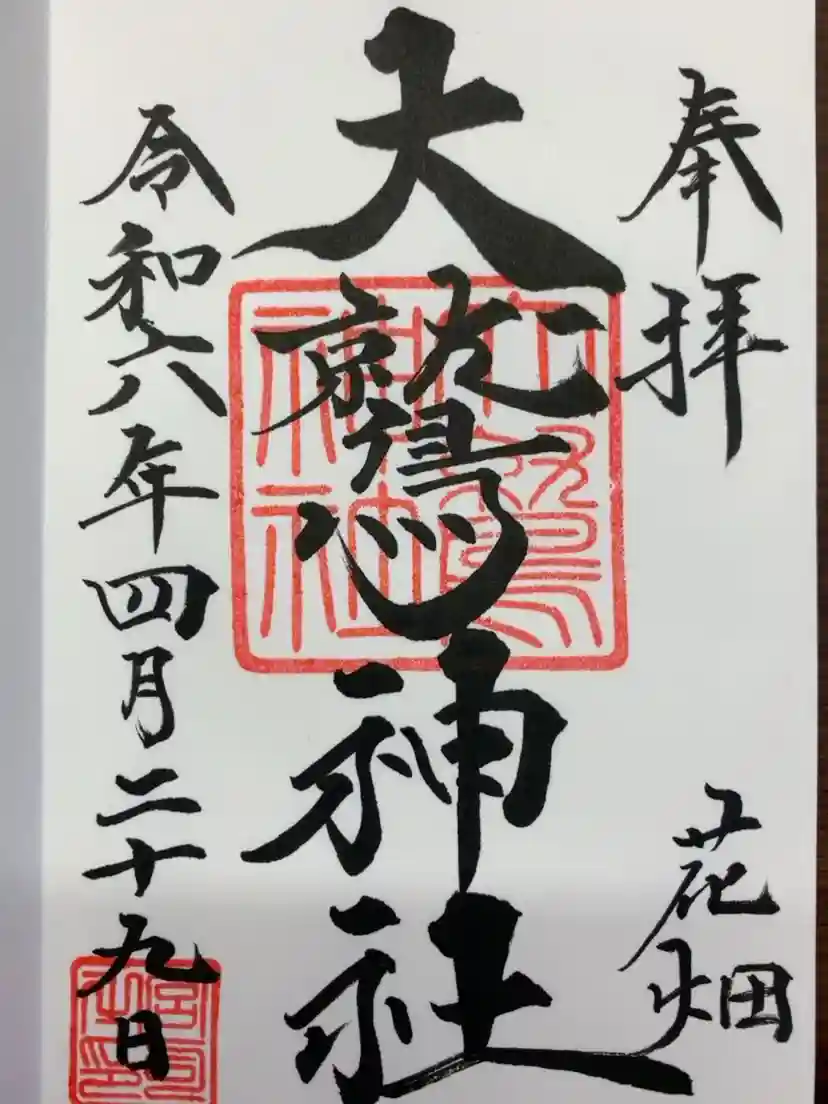 奉拝
花畑
大鷲神社
大鷲神社
令和六年四月二十九日